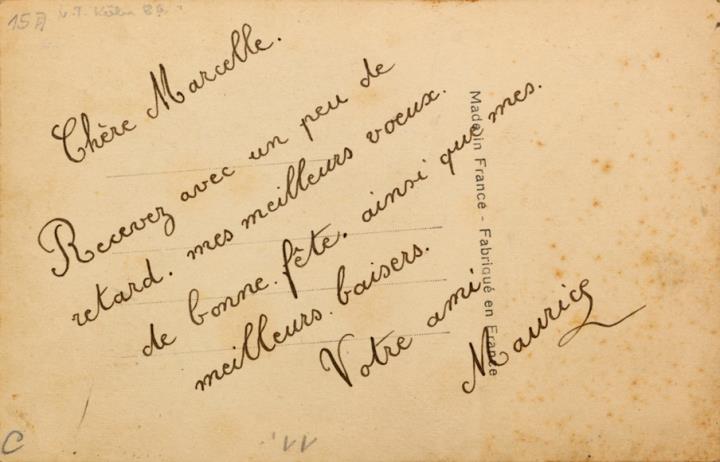 Chère Marcelle.
Recevez avec un peu de
retard. mes meilleurs voeux.
de bonne. fête. ainsi que mes.
meilleurs. baisers.
Votre ami
Maurice
Made in France - Fabriqué en France
C